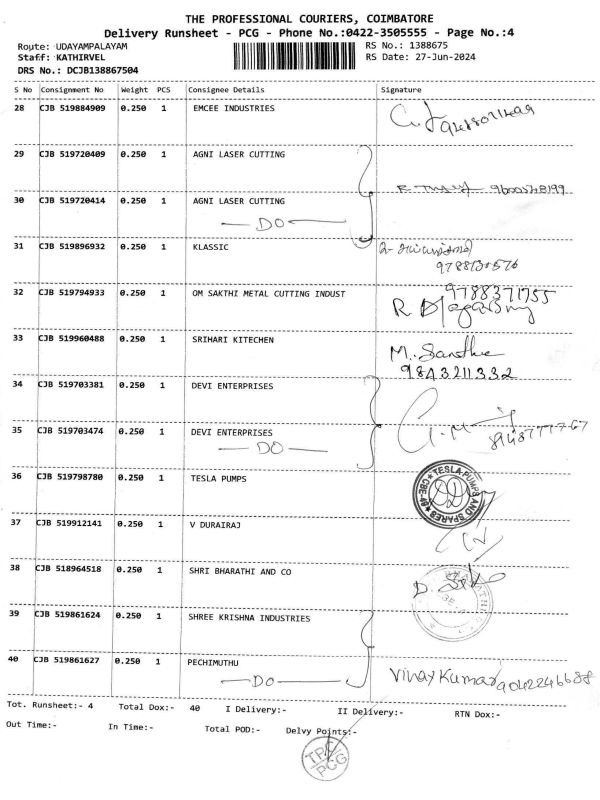 THE PROFESSIONAL COURIERS, COIMBATORE
Delivery Runsheet - PCG - Phone No.:0422-3505555 - Page No.:4
Route: UDAYAMPALAYAM RS No.: 1388675
Staff: KATHIRVEL RS Date: 27-Jun-2024
DRS No.: DCJB138867504
S No Consignment No Weight PCS Consignee Details Signature
28 CJB 519884909 0.250 1 EMCEE INDUSTRIES
29 CJB 519720409 0.250 1 AGNI LASER CUTTING
30 CJB 519720414 0.250 1 AGNI LASER CUTTING
DO
31 CJB 519896932 0.250 1 KLASSIC
32 CJB 519794933 0.250 1 OM SAKTHI METAL CUTTING INDUST 9788371755
33 CJB 519960488 0.250 1 SRIHARI KITECHEN
M. Sandhie
9843211332
34 CJB 519703381 0.250 1 DEVI ENTERPRISES
35 CJB 519703474 0.250 1 DEVI ENTERPRISES
DO
36 CJB 519798780 0.250 1 TESLA PUMPS TESLA PUMPS AND SPARES
37 CJB 519912141 0.250 1 V DURAIRAJ
38 CJB 518964518 0.250 1 SHRI BHARATHI AND CO
39 CJB 519861624 0.250 1 SHREE KRISHNA INDUSTRIES
40 CJB 519861627 0.250 1 PECHIMUTHU
DO Vinay Kumar 9042246688
Tot. Runsheet:- 4 Total Dox:- 40 I Delivery:- II Delivery:- RTN Dox:-
Out Time:- In Time:- Total POD:- Delvy Points:-
TPC
PCG